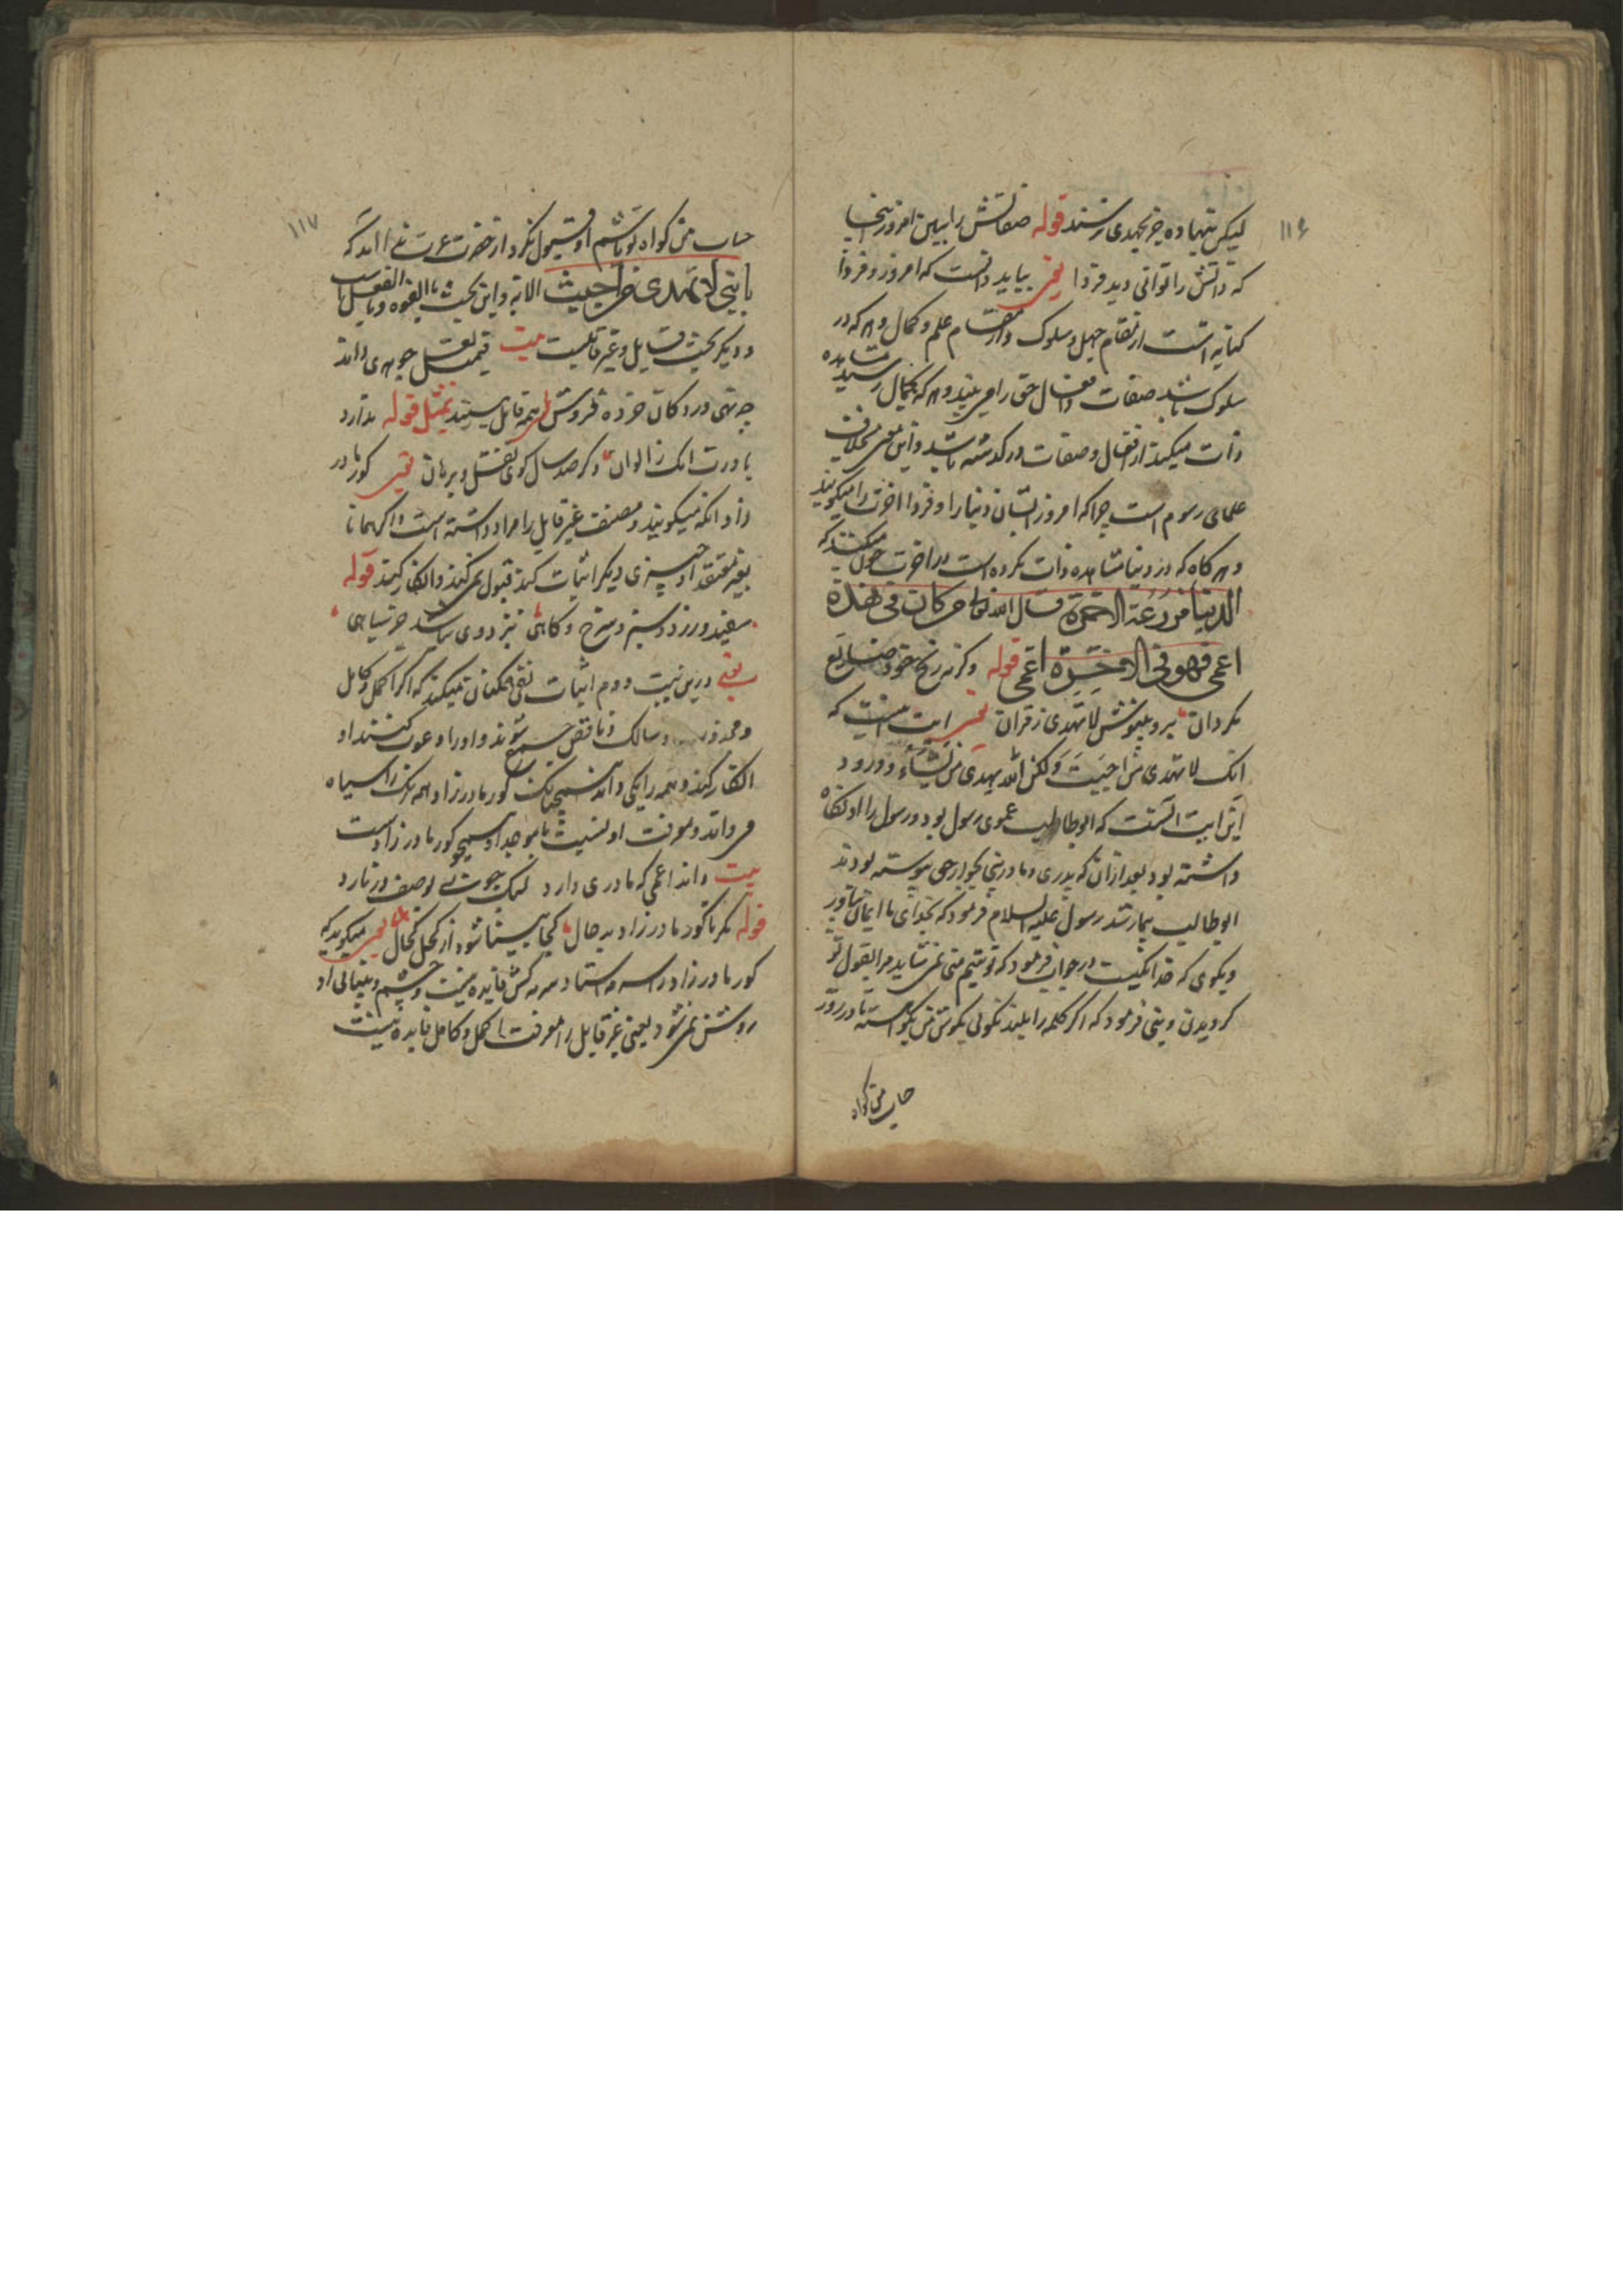 ۱۱۶
لیکن ننهاده جز بجهدی رسند قوله صفاتش را ببین امروز اینجا
که ذاتش را توانی دید فردا یعنی بباید دانست که امروز و فردا
کنایه است از مقام جهل و سلوک و از مقام علم و کمال و هر که در
سلوک باشد صفات و افعال حق را می بیند و هر که بکمال رسید مشاهده
ذات میکند از افعال و صفات در گذشته باشد و این معنی بخلاف
علمای رسوم است چرا که امروز ایشان دنیا را و فردا اخرت را میگویند
و هر کاه که در دنیا مشاهده ذات نکرده است در اخرت چون میکند که
الدنیا مزرعة الاخرة قال الله تعالی من کان فی هذه
اعمی فهو فی الاخرة اعمی قوله وگرنه رنج خود ضایع
مگردان برو بنیوش لا تهدی ز قران یعنی ایت اینست که
انک لا تهدی من احببت ولکن الله یهدی من یشاء و ورود
این ایت انست که ابوطالب عموی رسول بود و رسول را او نگاه
داشته بود بعد ازان که پدری و مادرش بجوار حق پیوسته بودند
ابوطالب بیمار شد رسول علیه السلام فرمود که بخدای ما ایمان بیاور
و بگوی که خدا یکیست در جواب فرمود که تو یتیم منی نمی شاید مرا بقول تو
گرویدن و نبی فرمود که اگر کلمه را بلند نگوئی بگوش من بگو اهسته تا در روز
حساب من گواه
۱۱۷
حساب من گواه تو باشم او قبول نکرد از حضرت عزت ندا امد که
یا نبی لا تهدی من احببت الایة و این بحث بالقوه و بالفعل است
و دیگر بحث قابل و غیر قابلست بیت قیمت لعل جوهری داند
چه نهی در دکان خرده فروش همه قابل نیستند تمثیل قوله ندارد
باورت اکمه ز الوان وگر صد سال گوئی نقل و برهان یعنی کور مادر
زاد اکمه میگویند و مصنف غیر قابل را مراد داشته است که همانا
بغیر معتقد او چیزی دیگر اثبات کند قبول نمی کند و انکار کند قوله
سفید و زرد و سبز و سرخ و کاهی نزد وی نباشد جز سیاهی
یعنی درین بیت دوم اثبات نفی ممکنان میکند که اگر اکمل و کامل
و مجذوب و سالک و ناقص جمع شوند و او را دعوت کنند او
انکار کند و همه را یکی داند همچنانک کور مادر زاد همه رنگ را سیاه
می داند و معرفت او نسبت با موجد او همچو کور مادر زادست
بیت داند اعمی که مادری دارد لیک چون بوصف در نارد
قوله نگر تا کور مادر زاد بدحال کجا بینا شود از کحل کحال یعنی میگوید که
کور مادر زاد را سرمه استاد سرمه کش فایده نیست و چشم و بینائی او
روشن نمی شود یعنی غیر قابل را معرفت اکمل و کامل فایده نیست